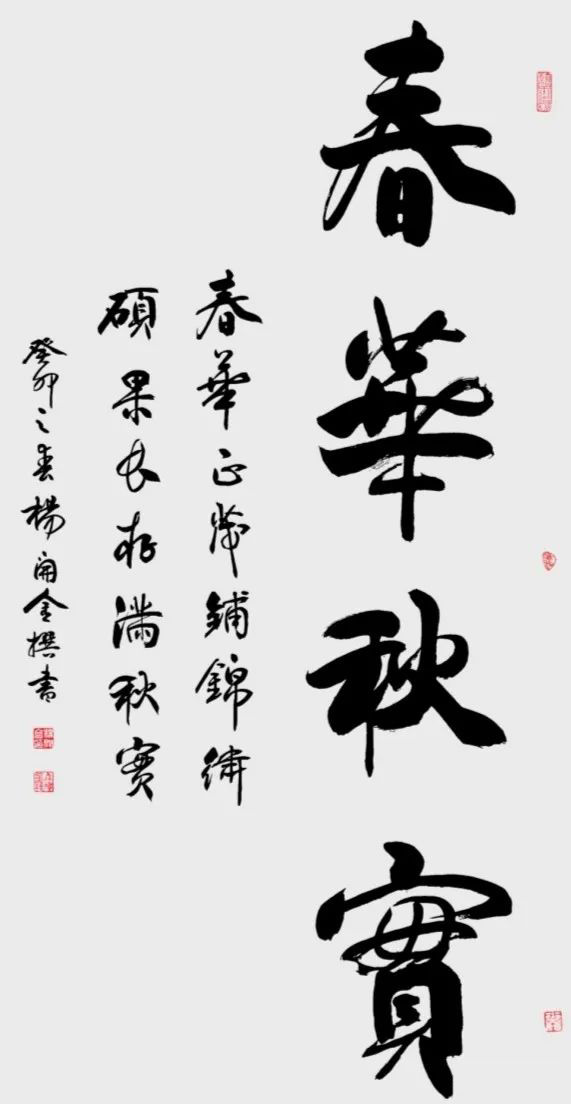 春華秋實
春華正茂鋪錦繡
碩果長存滿秋實
癸卯之春楊開金撰書